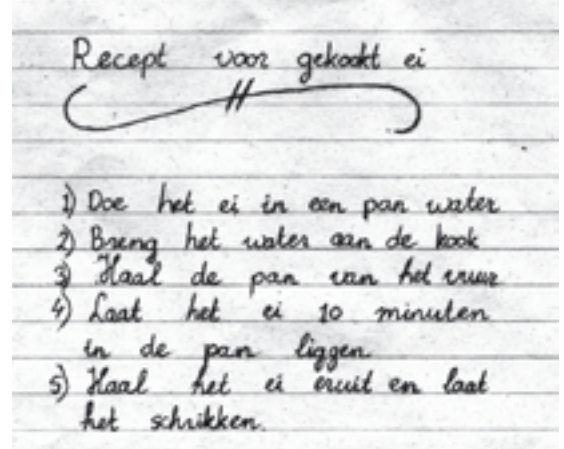 Recept voor gekookt ei
1) Doe het ei in een pan water
2) Breng het water aan de kook
3) Haal de pan van het vuur
4) Laat het ei 10 minuten
in de pan liggen
5) Haal het ei eruit en laat
het schrikken.